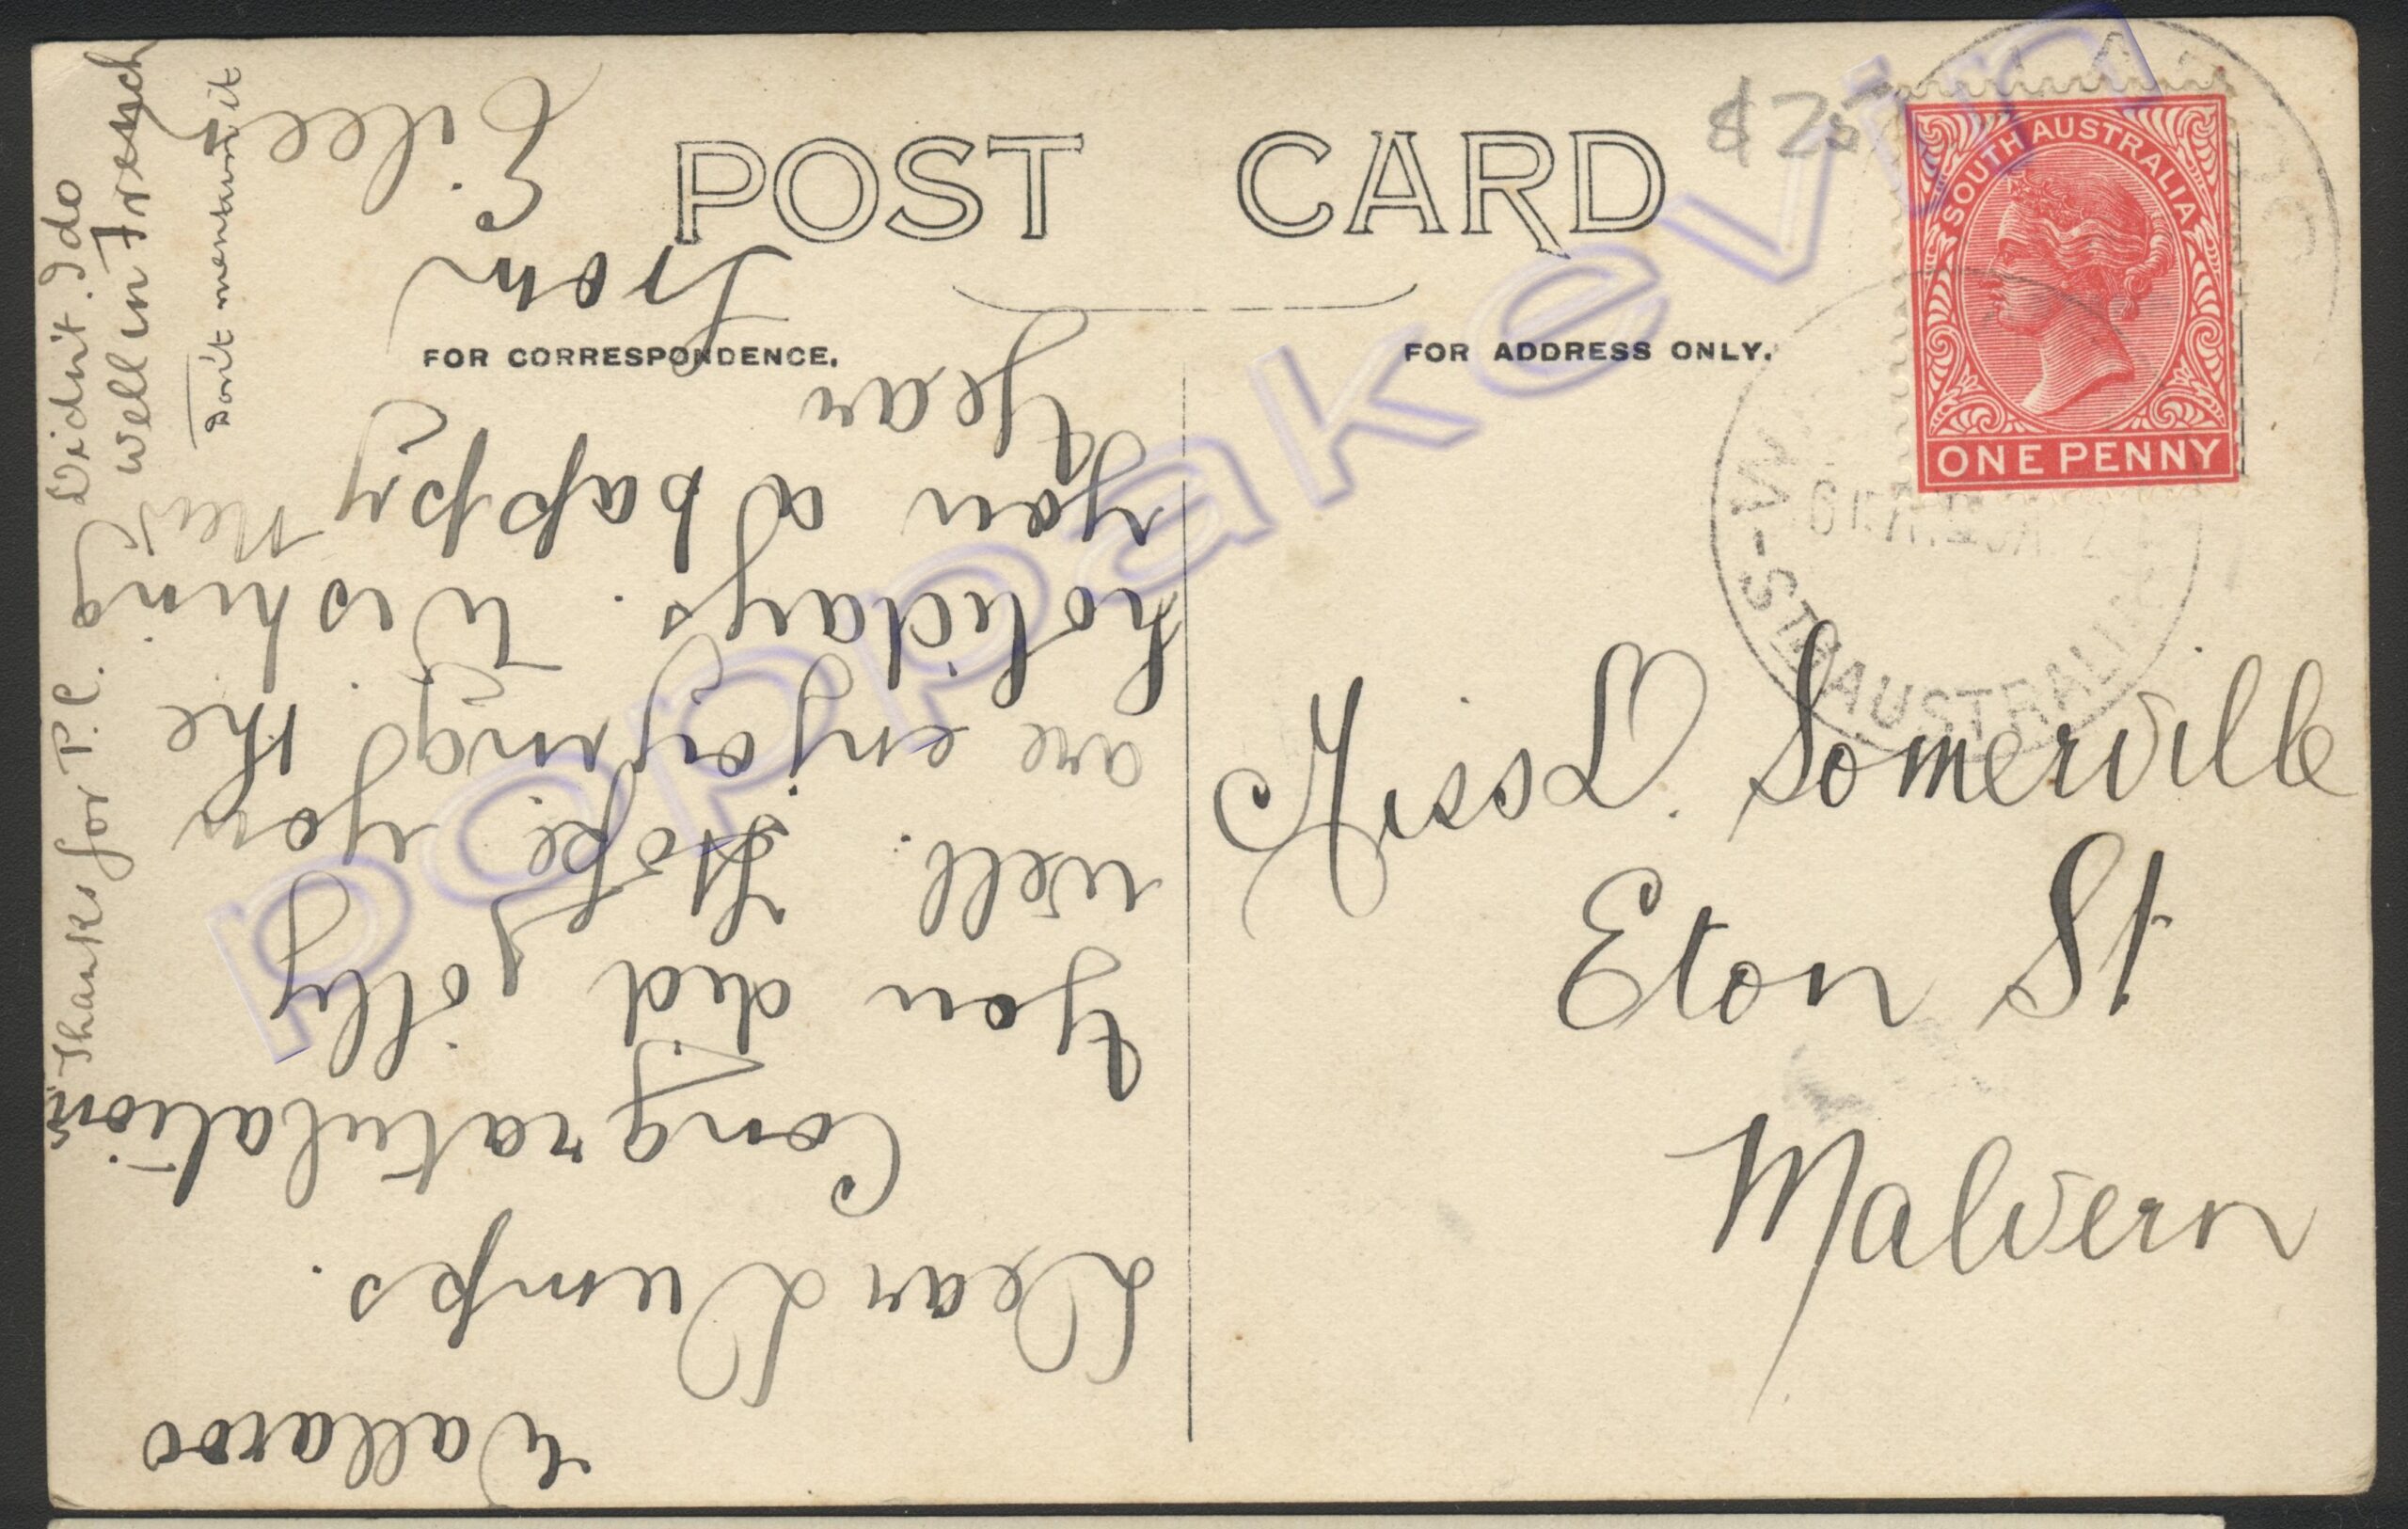 POST CARD
FOR CORRESPONDENCE.
FOR ADDRESS ONLY.
$25
SOUTH AUSTRALIA
ONE PENNY
W-S
STH AUSTRALIA
Miss D. Somerville
Eton St
Malvern
Wallaroo
Dear Dumps.
Congratulations
You did jolly
well. Hope you
are enjoying the
holidays. Wishing
you a happy New
Year
from
Eilee
Thanks for P.C.
Didn't I do
well in French
Don't mention it
poppakevin